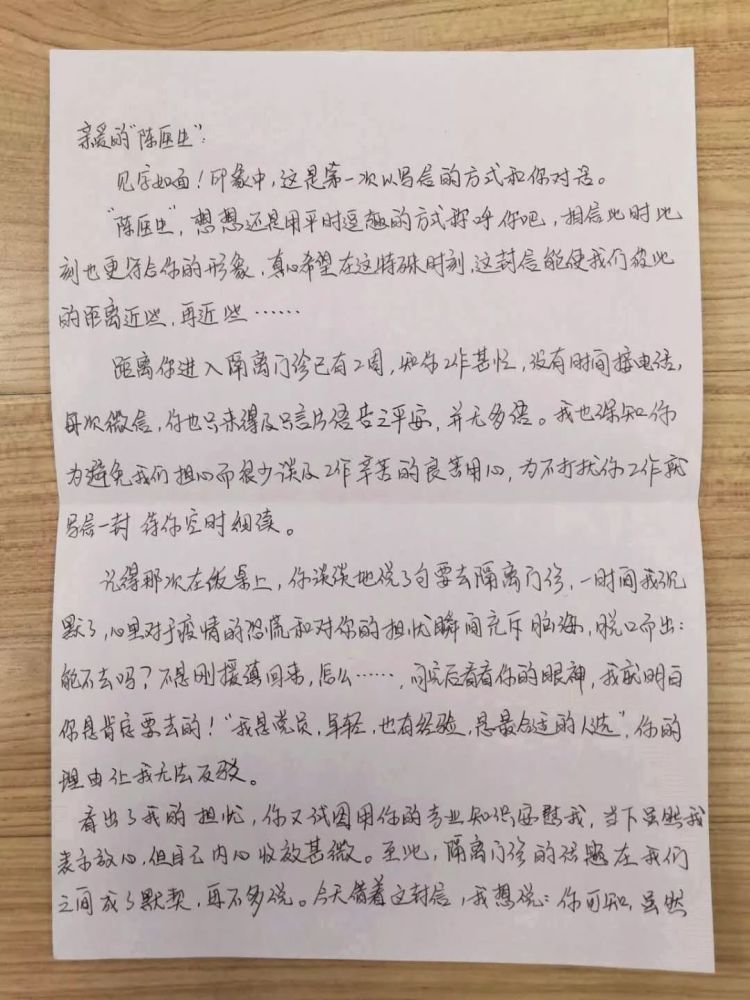 亲爱的"陈医生"：
见字如面！印象中，这是第一次以写信的方式和你对话。
"陈医生"，想想还是用平时逗趣的方式称呼你吧，相信此时此
刻也更符合你的形象，真心希望在这特殊时刻，这封信能使我们彼此
的距离近些，再近些……
距离你进入隔离门诊已有2周，知你工作甚忙，没有时间接电话，
每次微信，你也只来得及只言片语告之平安，并无多语。我也深知你
为避免我们担心而很少谈及工作辛苦的良苦用心，为不打扰你工作就
写信一封 待你空时细读。
记得那次在饭桌上，你淡淡地说了句要去隔离门诊，一时间我沉
默了，心里对于疫情的恐慌和对你的担忧瞬间充斥脑海，脱口而出：
能不去吗？不是刚援滇回来，怎么……，问完后看看你的眼神，我就明白
你是肯定要去的！"我是党员，年轻，也有经验，是最合适的人选"，你的
理由让我无法反驳。
看出了我的担忧，你又试图用你的专业知识安慰我，当下虽然我
表示放心，但自己内心收效甚微。至此，隔离门诊的话题在我们
之间成了默契，再不多说。今天借着这封信，我想说：你可知，虽然